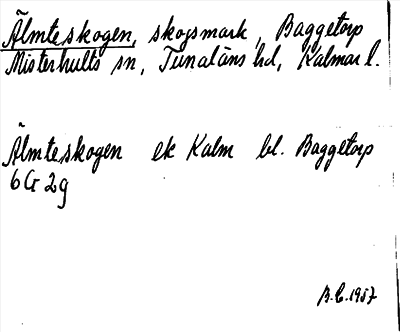 Älmteskogen, skogsmark, Baggetorp
Misterhults sn, Tunaläns hd, Kalmar l.
Älmteskogen ek Kalm bl. Baggetorp
6G 2g
B.C. 1957